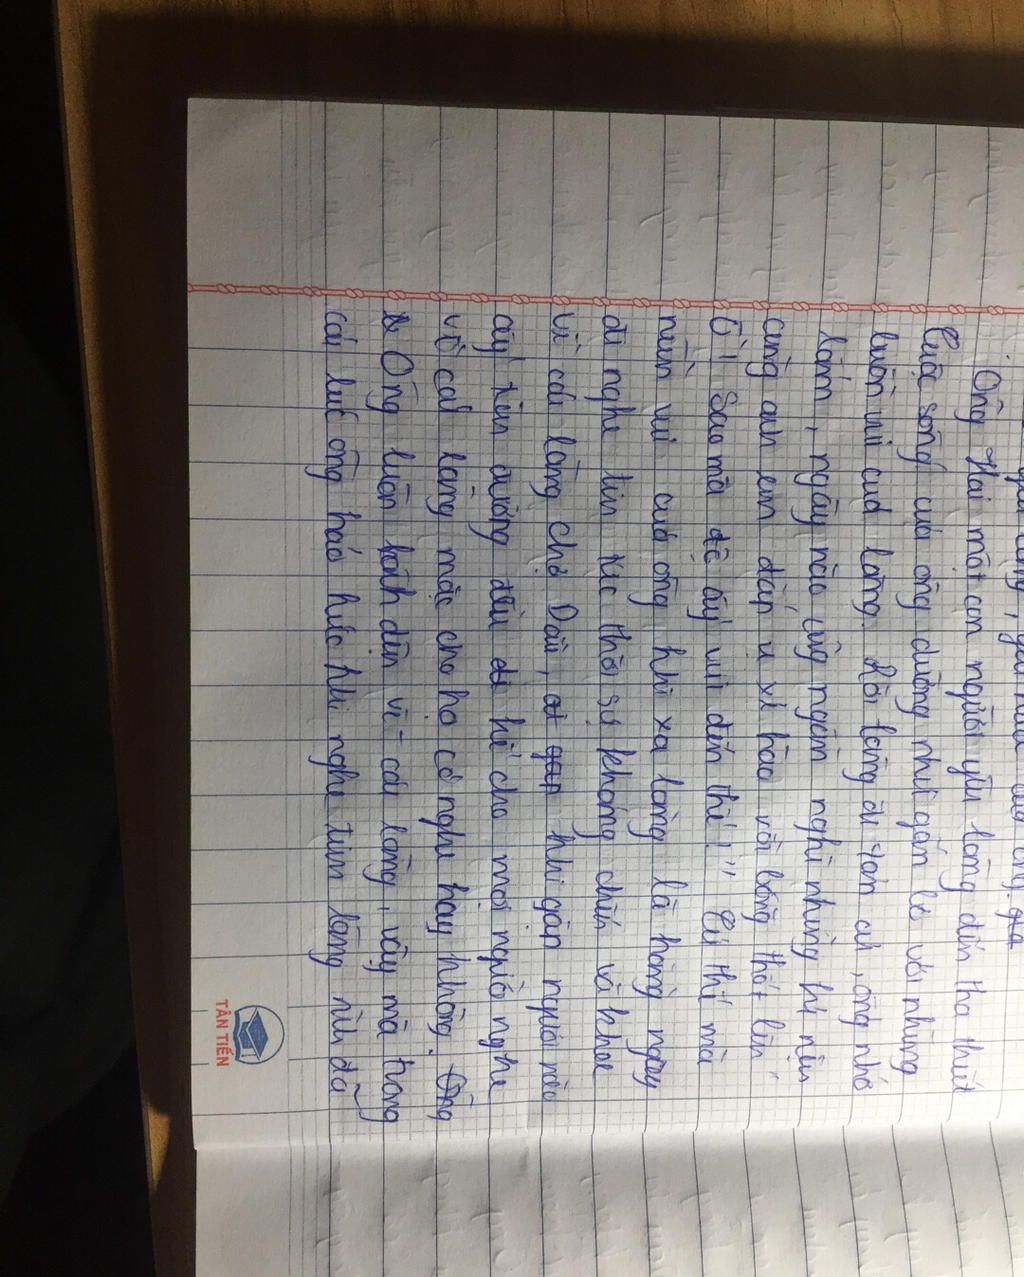 Ông Hai một con người yêu làng đến tha thiết
Cuộc sống của ông dường như gắn bó với những
buồn vui của làng. Rời làng đi tản cư, ông nhớ
lắm, ngày nào cũng ngẫm nghĩ những kỉ niệm
cùng anh em đắp ụ xẻ hào rồi bỗng thốt lên "
Ồ! Sao mà độ ấy vui đến thế!" Cứ thế mà
niềm vui của ông khi xa làng là hàng ngày
đi nghe tin tức thời sự kháng chiến và khoe
về cái làng chợ Dầu, khi gặp người nào
ấy trên đường đều kể cho mọi người nghe
về cái làng mặc cho họ có nghe hay không. Ông
Ông luôn hãnh diện vì cái làng, vậy mà trong
cái lúc ông háo hức khi nghe tin làng thì đã
TÂN TIẾN